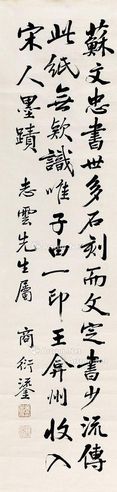 蘇文忠書世多石刻而文定書少流傳
此紙無欵識唯子由一印王弇州收入
宋人墨蹟
志雲先生屬 商衍鎏